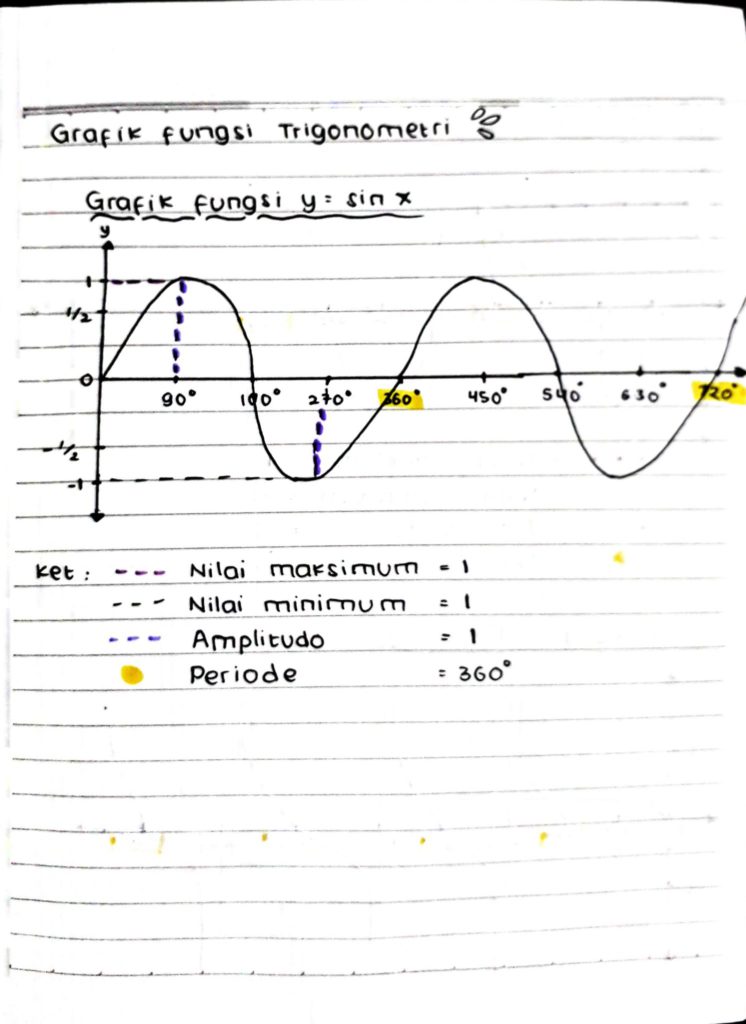 Grafik fungsi Trigonometri
Grafik fungsi y = sin x
y
1
1/2
0
90° 180° 270° 360° 450° 540° 630° 720°
-1/2
-1
Ket : --- Nilai maksimum = 1
--- Nilai minimum = 1
--- Amplitudo = 1
Periode = 360°